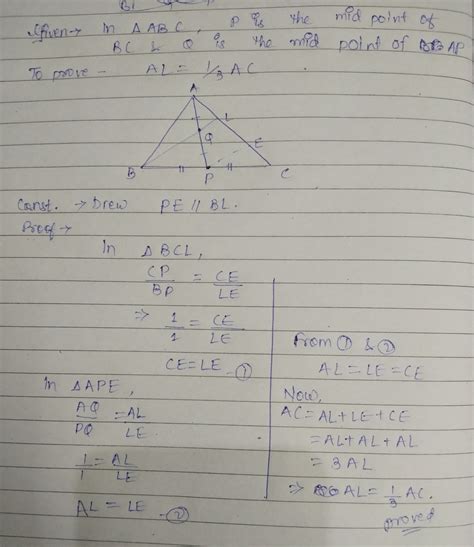 Given → In △ ABC, P is the mid point of
BC & Q is the mid point of AP
To prove - AL = 1/3 AC
A
L
Q
E
B
P
C
Const. → Drew PE // BL.
Proof →
In △ BCL,
CP/BP = CE/LE
⇒ 1/1 = CE/LE
CE = LE - ①
In △ APE,
AQ/PQ = AL/LE
1/1 = AL/LE
AL = LE - ②
From ① & ②
AL = LE = CE
Now,
AC = AL + LE + CE
= AL + AL + AL
= 3 AL
⇒ AL = 1/3 AC.
proved